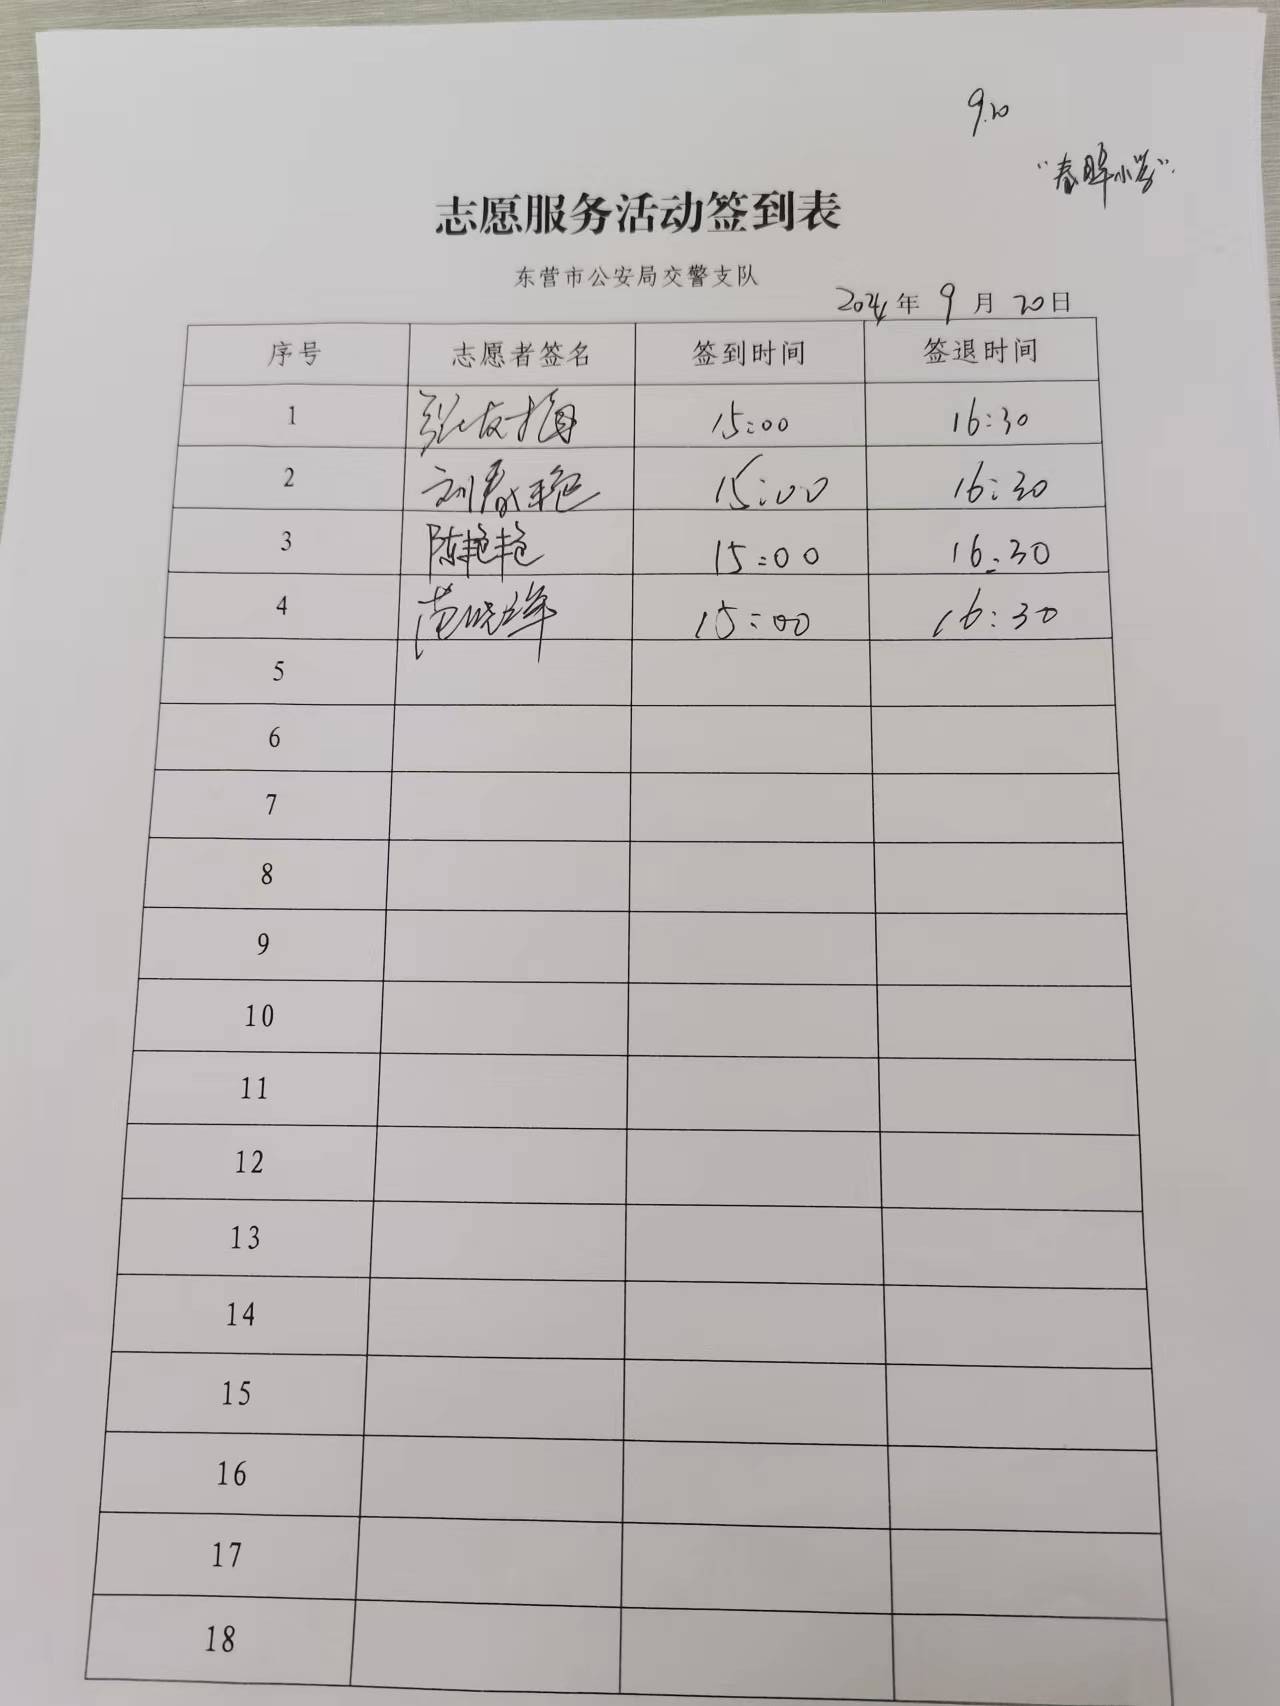 9.20
"春晖小学"
志愿服务活动签到表
东营市公安局交警支队
2024年 9月 20日
序号 志愿者签名 签到时间 签退时间
1 张友梅 15:00 16:30
2 刘春艳 15:00 16:30
3 陈艳艳 15:00 16:30
4 15:00 16:30
5
6
7
8
9
10
11
12
13
14
15
16
17
18